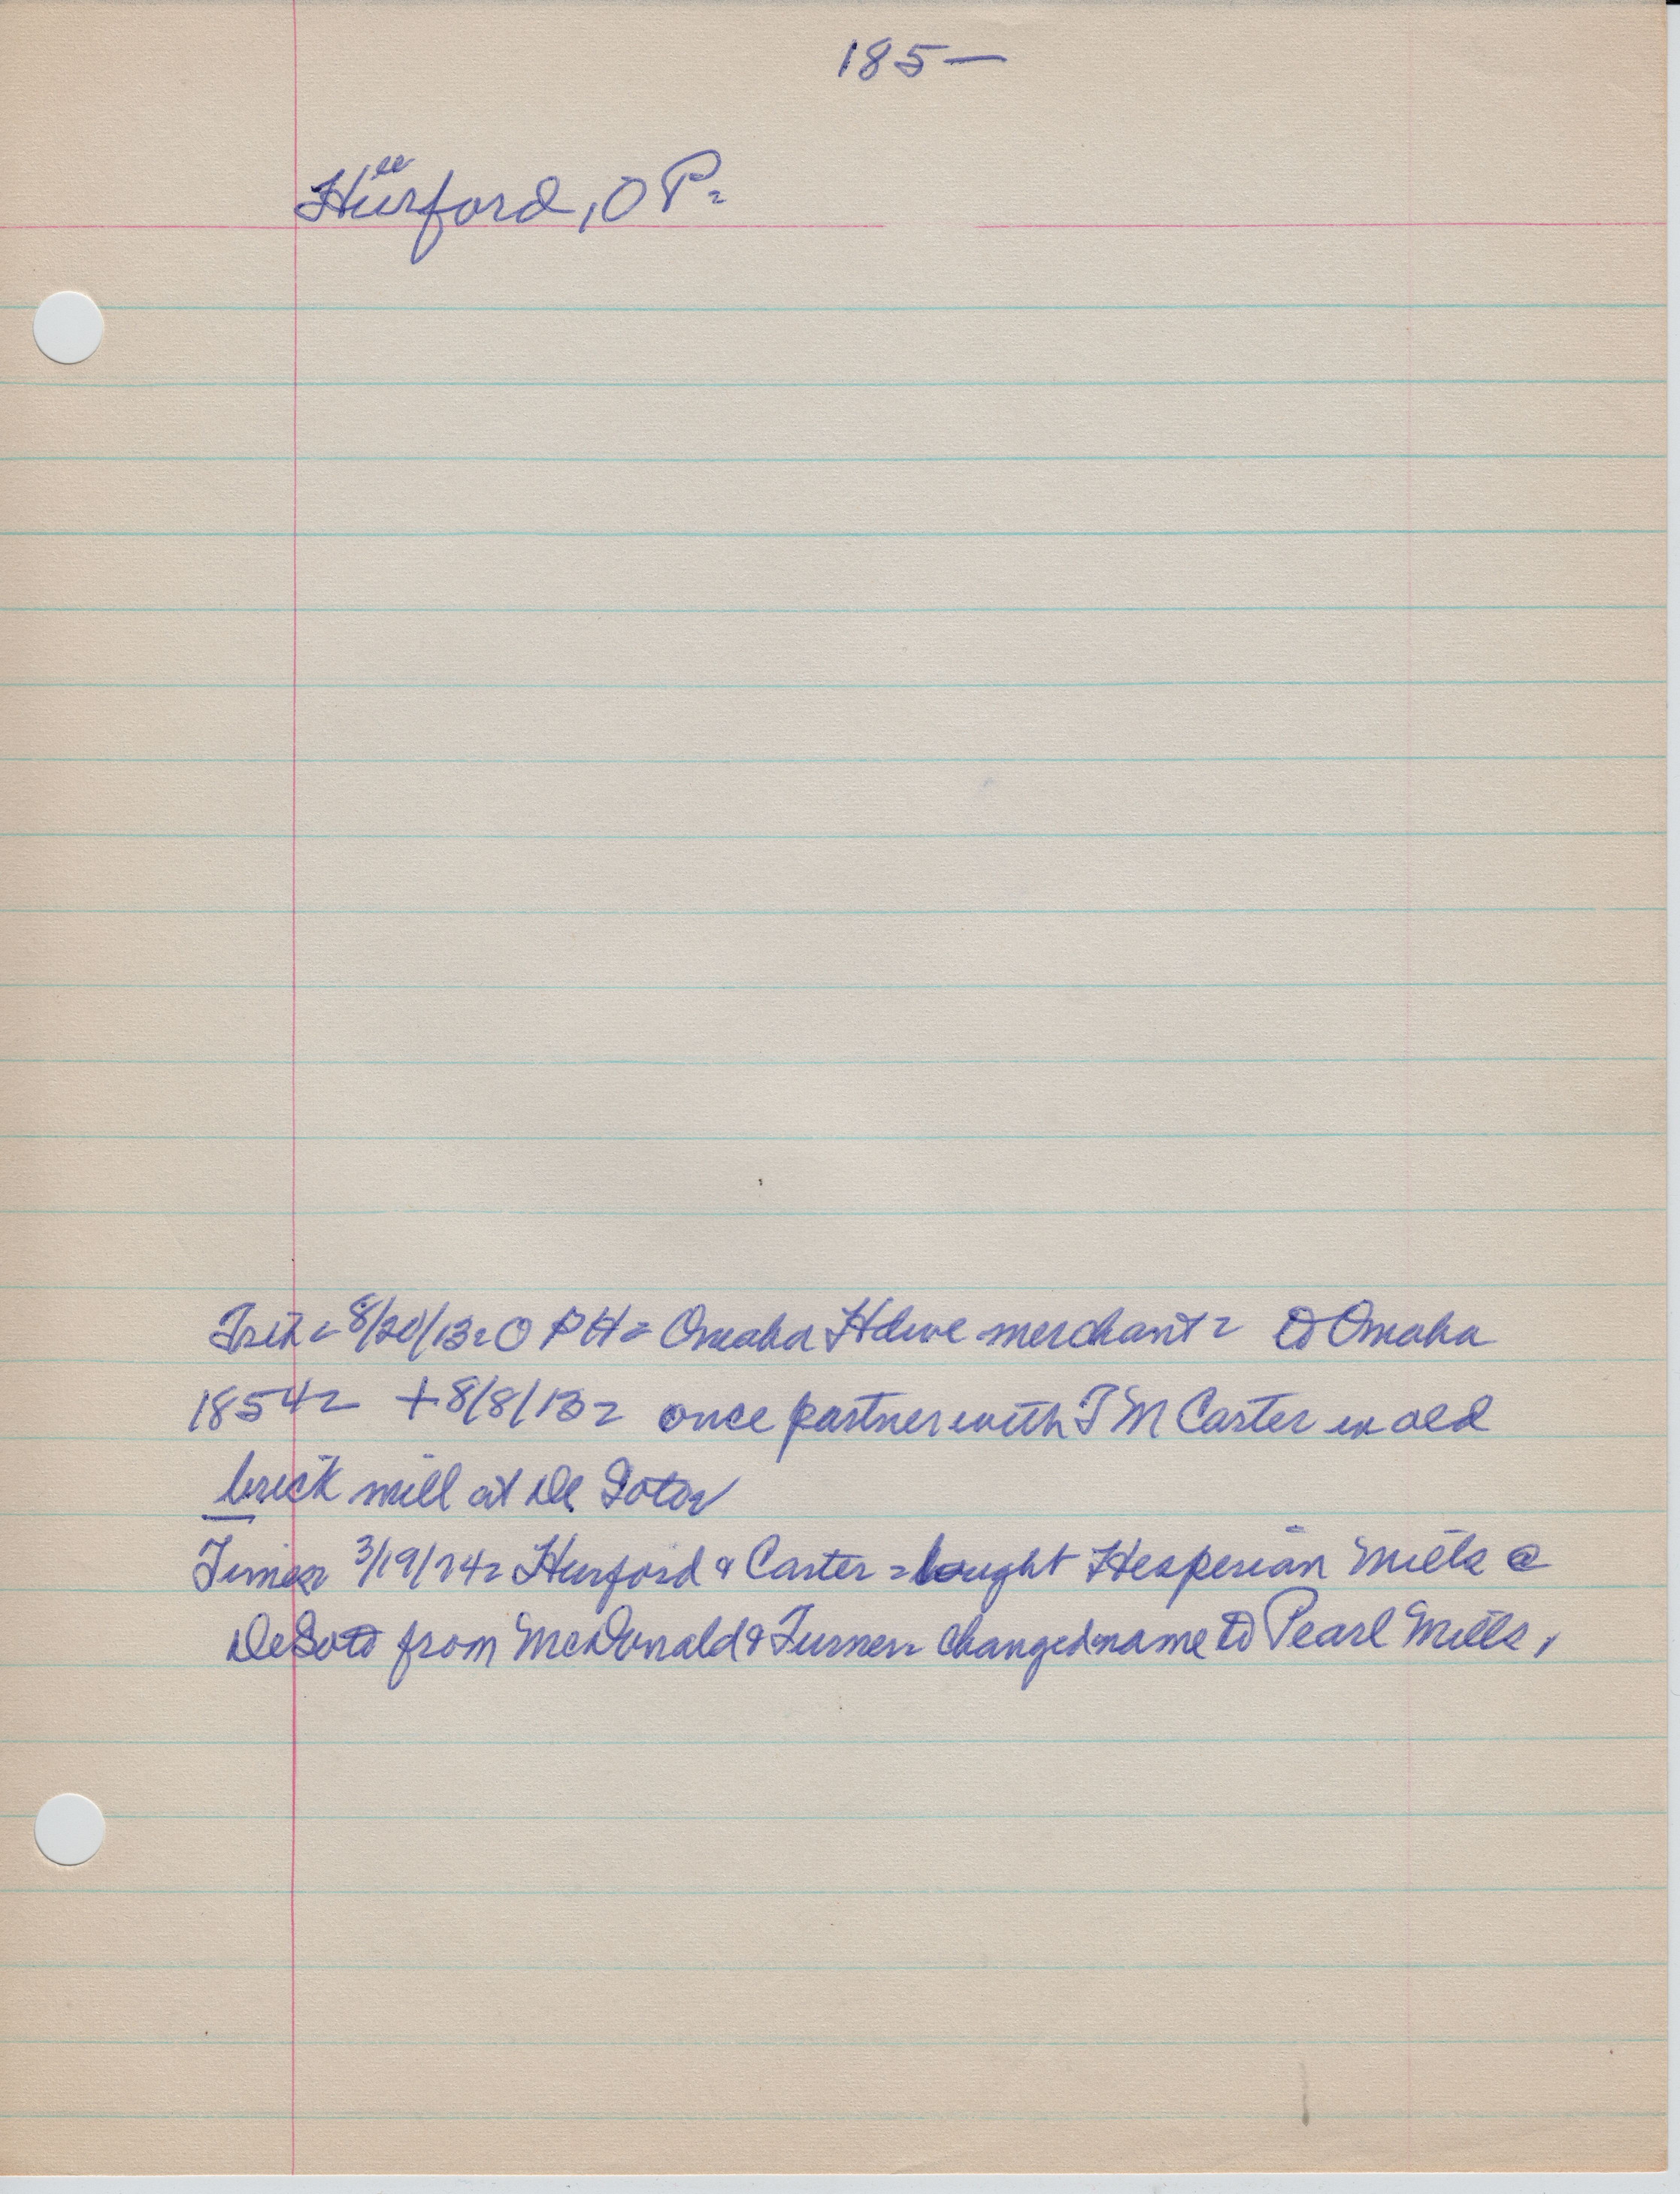 185—
Hurford, O P=
Trib = 8/20/13 = O P H = Omaha Hdwe merchant = to Omaha
1854 = + 8/8/13 = once partner with T M Carter in old
brick mill at De Soto
Times 3/19/74 = Hurford & Carter = bought Hesperian Mills @
DeSoto from McDonald & Turner = changed name to Pearl Mills,